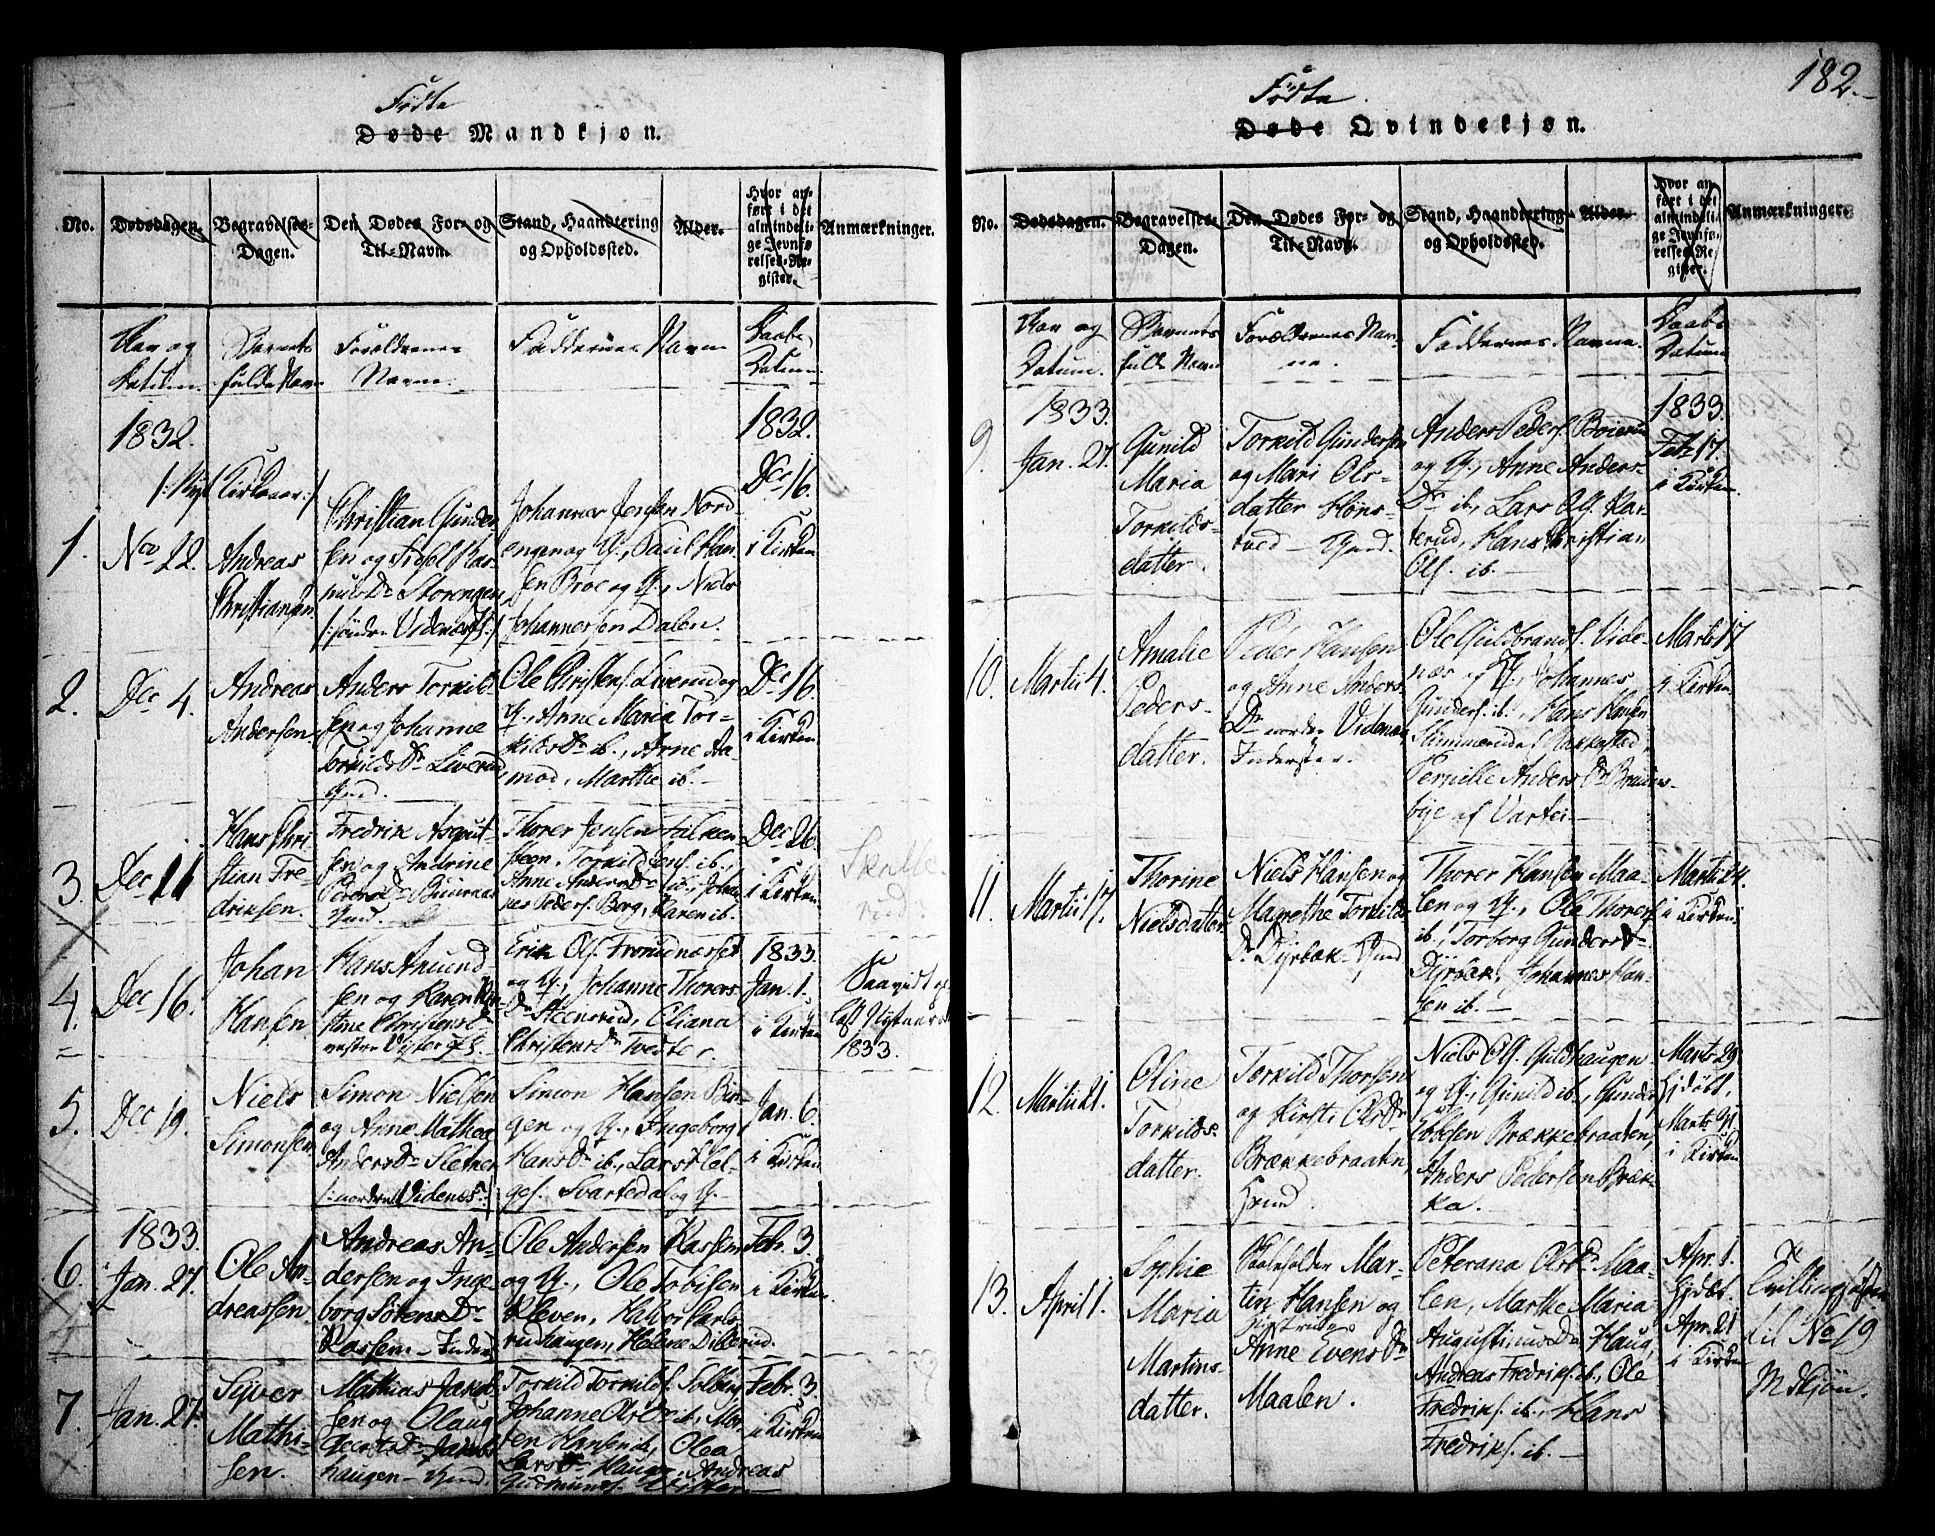 182.
Födte
Døde Mandkjøn.
No.
Dødsdagen.
Begravelses-
Dagen.
Den Dødes For- og
Til-Navn.
Stand, Haandtering
og Opholdssted.
Alder.
Hvor an-
ført i det
almindeli-
ge Jevnfø-
relses-Re-
gister.
Anmærkninger.
Aar og
Datum.
Barnets
fulde Navn
Forældrenes
Navne.
Faddernes Navne
Daabs
Datum
1832
1832.
1.
Nov 22.
Andreas
Christiansen
Christian Gunder-
sen og Sidsel Ras-
Storengen
Johannes Jensen Nord-
engen og H., Paul Han-
sen Broe og H., Niels
Johannessen Dalen.
Dec 16.
i Kirken
2.
Dec 4.
Andreas
Andersen
Anders Torkild-
sen og Johanne
Torkilds Dr Liverud
Ole Christens. Liverud og
H., Anne Maria Tor-
kilds Dr ib., Arne Aa-
mod, Marthe ib.
Dec 16.
i Kirken
3.
Dec 11
Hans Chri-
stian Fre-
driksen.
Fredrik Asgut-
sen og Andrine
Thorer Jensen Falken-
steen, Torkild Jens. ib.,
Dec 26.
i Kirken
4.
Dec 16.
Johan
Hansen
Hans Amund-
sen og Karen Kir-
stine Christens Dr
Erik Ols.
og H., Johanne Thorers
Dr Steensrud, Eliana
Christens Dr Tvedter.
1833.
Jan. 1.
i Kirken
1833.
5.
Dec 19.
Niels
Simonsen
Simon Nielsen
og Anne Mathea
Anders Dr Sletner
/: nordre Videnes :/
Simon Hansen Bin-
gen og H., Ingeborg
Hans Dr ib., Lars Hel-
ges. Svartedal og H.
Jan. 6.
i Kirken
1833.
6.
Jan. 27.
Ole An-
dreassen.
Andreas An-
dersen og Inge-
borg Sörens Dr
Kassen
Ole Andersen Kassen
og H., Ole Tobisen
Kleven, Halvor Karls-
rudhaugen, Helene Dillerud.
Febr. 3.
i Kirken
7.
Jan. 27.
Syver
Mathi-
sen.
Mathias Jakob-
sen og Olaug
haugen
Torkild Torkilds. Solberg
Johanne Ols Dr ib., Mor-
ten Hansen ib., Olea
Lars Dr Haugen, Andreas
Gudmunds.
Febr. 3.
i Kirken
Födte
Døde Qvindekjøn.
No.
Dødsdagen.
Begravelses-
Dagen.
Den Dødes For- og
Til-Navn.
Stand, Haandtering
og Opholdssted.
Alder.
Hvor an-
ført i det
almindeli-
ge Jevnfø-
relses-Re-
gister.
Anmærkninger.
Aar og
Datum.
Barnets
fulde Navn
Forældrenes Nav-
ne.
Faddernes Navne.
Daabs
Datum
1833.
1833.
9.
Jan. 27.
Gunild
Maria
Torkilds-
datter.
Torkild Gundersen
og Mari Ols-
datter Höns-
tved
Anders Peders. Boierud
og H., Anne Anders-
Dr ib., Lars Ols. Kar-
terud, Hans Christian
Ols. ib.
Feb. 17.
i Kirken.
10.
Martii 4.
Amalie
Peders-
datter.
Peder Hansen
og Anne Anders
Dr nordre Videnes
Inderster.
Ole Guldbrands. Vide-
næs og H., Johannes
Gunders. ib., Hans Hansen
Slimmerud af Rakkestad,
Pernille Anders Dr Brandes-
bye af Varteig
Marts 17
i Kirken
11.
Martii 17.
Thorine
Nielsdatter
Niels Hansen og
Magrethe Torkilds
Dr Dyrbæk
Thorer Hansen Maa-
len og H., Ole Thorers.
ib., Torborg Gunders Dr
Dyrbæk, Johannes Han-
sen ib.
Martii 24.
i Kirken
12.
Martii 21.
Oline
Torkilds-
datter.
Torkild Thorsen
og Kirsti Ols Dr
Brækkebraaten,
Niels Ols. Guldhaugen
og H., Gunild ib., Gunder
Ebbesen Brækkebraaten,
Anders Pedersen Bræk-
ka.
Marts 29.
hjdöbt,
i Kirken
13.
April 1.
Sophie
Maria
Martins-
datter.
Mar-
tin Hansen og
Anne Evens Dr
Maalen.
Peterana Ols Dr Maa-
len, Marthe Maria
Augustinus Dr Haug,
Andreas Fredriks. ib., Ole
Fredriks. ib., Hans
Fredriks. ib.
Apr. 1.
hjdöbt.
Apr. 21
i Kirken
Tvillingsöster
til No 19
M. Kjön.